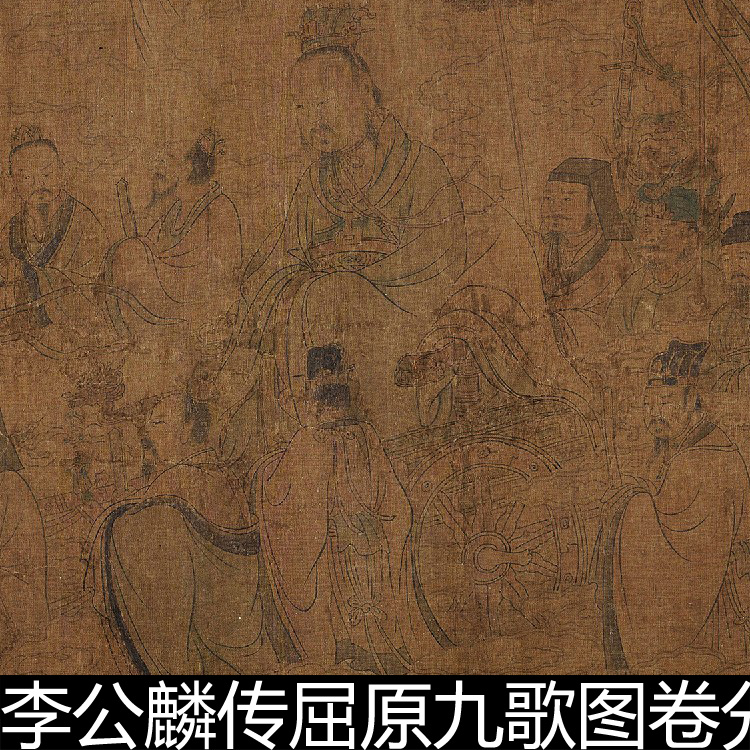 李公麟传屈原九歌图卷